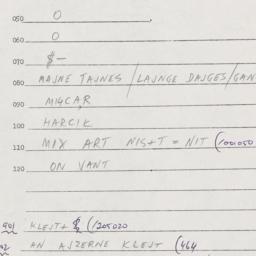 050 0
060 0
070 $ —
080 MAJNE TAJNES / LAJNGE DAJGES / GAN
090 MIGCAR
100 HARCIK
110 MIX ART NIS+T = NIT (1001050
120 ON VANT
901 KLEJT+ $ (1205020
902 AN AJZERNE KLEJT (464